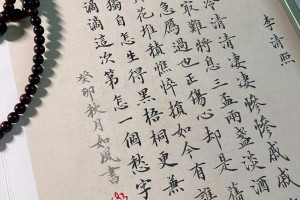 李清照
冷清清淒淒慘慘戚戚
最難將息三盃兩盞淡酒
急鴈過也正傷心卻是舊
花堆積憔悴損如今有誰
獨自怎生得黑梧桐更兼
滴滴這次第怎一個愁字
癸卯秋月如風書